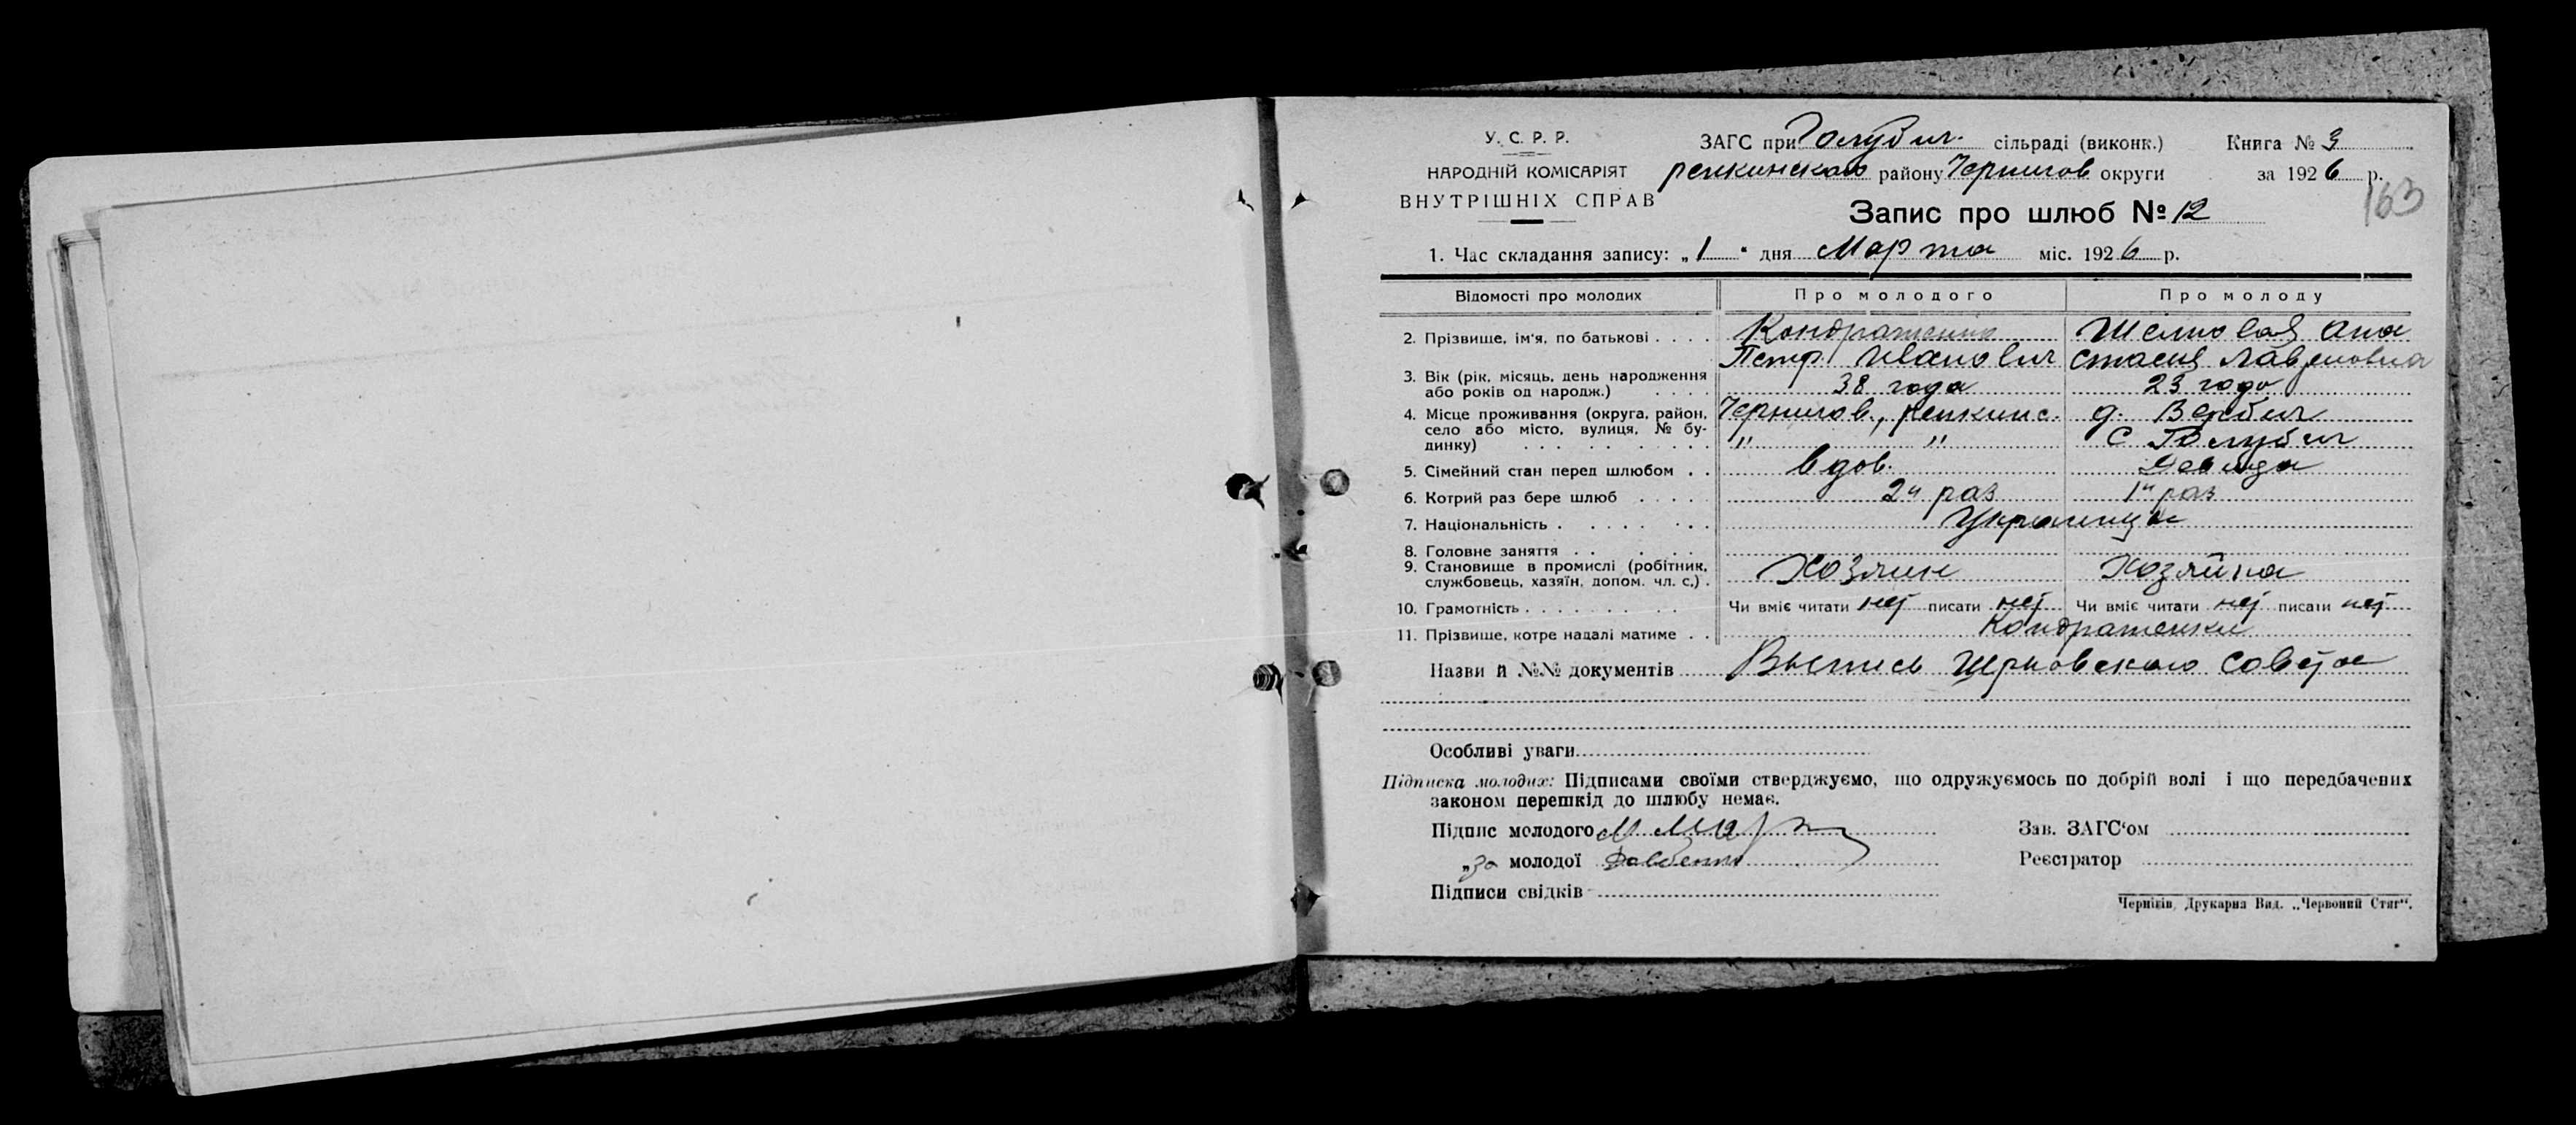 У. С. Р. Р.
НАРОДНІЙ КОМІСАРІЯТ
ВНУТРІШНІХ СПРАВ
ЗАГС при Голубич. сільраді (виконк.) Книга № 3
репкинского району Чернигов округи за 1926 р.
163
Запис про шлюб № 12
1. Час складання запису: „1“ дня Марта міс. 1926 р.
Відомості про молодих Про молодого Про молоду
2. Прізвище, ім'я, по батькові . . . . Кондратенко Ана
Петр Иванович стасия
3. Вік (рік, місяць, день народження
або років од народж.) . . . . 38 года 23 годо
4. Місце проживання (округа, район, Чернигов., репкинс. д. Вербич
село або місто, вулиця, № бу- " " С Голубич
динку) . . . . . . . . . .
5. Сімейний стан перед шлюбом . . вдов. Девица
6. Котрий раз бере шлюб . . . . 2й раз 1й раз
7. Національність . . . . . . . . Украинцы
8. Головне заняття . . . . . .
9. Становище в промислі (робітник,
службовець, хазяїн, допом. чл. с.) . Хозяин Хозяйка
10. Грамотність . . . . . . . . . Чи вміє читати нет писати нет Чи вміє читати нет писати нет
11. Прізвище, котре надалі матиме . . Кондратенки
Назви й №№ документів Выпись Совета
Особливі уваги
Підписка молодих: Підписами своїми стверджуємо, що одружуємось по добрій волі і що передбачених
законом перешкід до шлюбу немає.
Підпис молодого Зав. ЗАГС'ом
„за молодої Реєстратор
Підписи свідків
Чернігів, Друкарня Вид. „Червоний Стяг“.